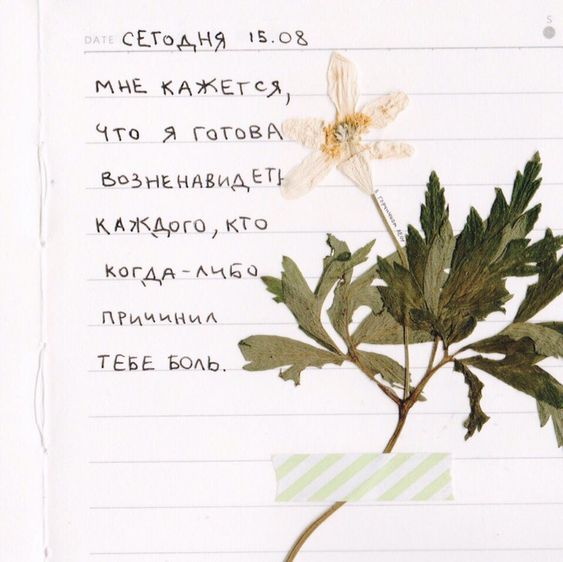 DATE СЕГОДНЯ 15.08 S
МНЕ КАЖЕТСЯ,
ЧТО Я ГОТОВА
ВОЗНЕНАВИДЕТЬ
КАЖДОГО, КТО
КОГДА-ЛИБО
ПРИЧИНИЛ
ТЕБЕ БОЛЬ.